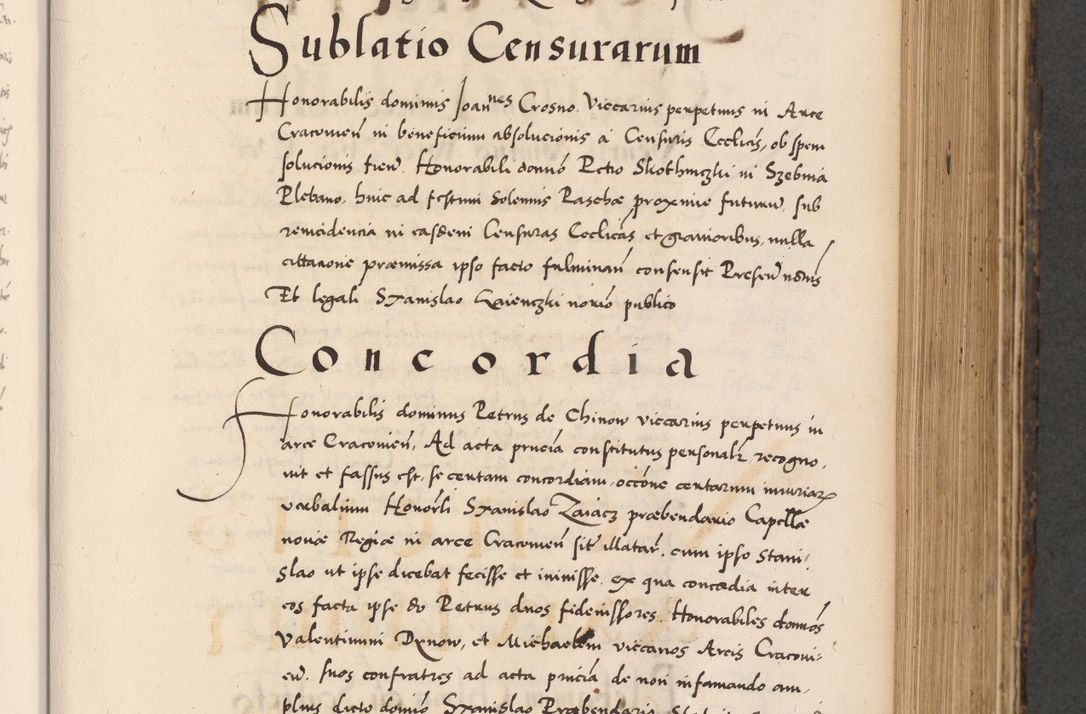 Sublatio Censurarum
Honorabilis dominus Joannes Crosno. Viccarius perpetuus in Arce
Cracovien in beneficium absolucionis a Censuris Ecclicis, ob spem
solucionis fiend. Honorabili domino Petro Skothniczki in Szebnia
Plebano, hinc ad festum Solennis Paschae proxenie futurum, sub
reincidencia in easdem Censuras Ecclicas et gravioribus, nulla
cittatione praemissa ipso facto fulminan consensit Presend nobis
Et legali Stanislao Gaienczki notrio publico
Concordia
Honorabilis dominus Petrus de Chinow viccarius perpetuus in
arce Cracovien, Ad acta prncia constitutus personalr recogno,
uit et fassus est, se certam concordiam, occone certarum iniuriar
verbalium Honorli Stanislao Zaiacz praebendario Capellae
novae Regiae in arce Cracovien sit Illatar, cum ipso Stani,
slao ut ipse dicebat fecisse et inivisse, ex qua concordia inter
eos facta ipse do Petrus duos fideiussores, Honorabiles domnos
Valentinum Drnow, et Michaelem viccarios Arcis Cracovi,
en, suos confratres ad acta prncia de non infamando am,
plius dicto domno Stanislao Praebendario